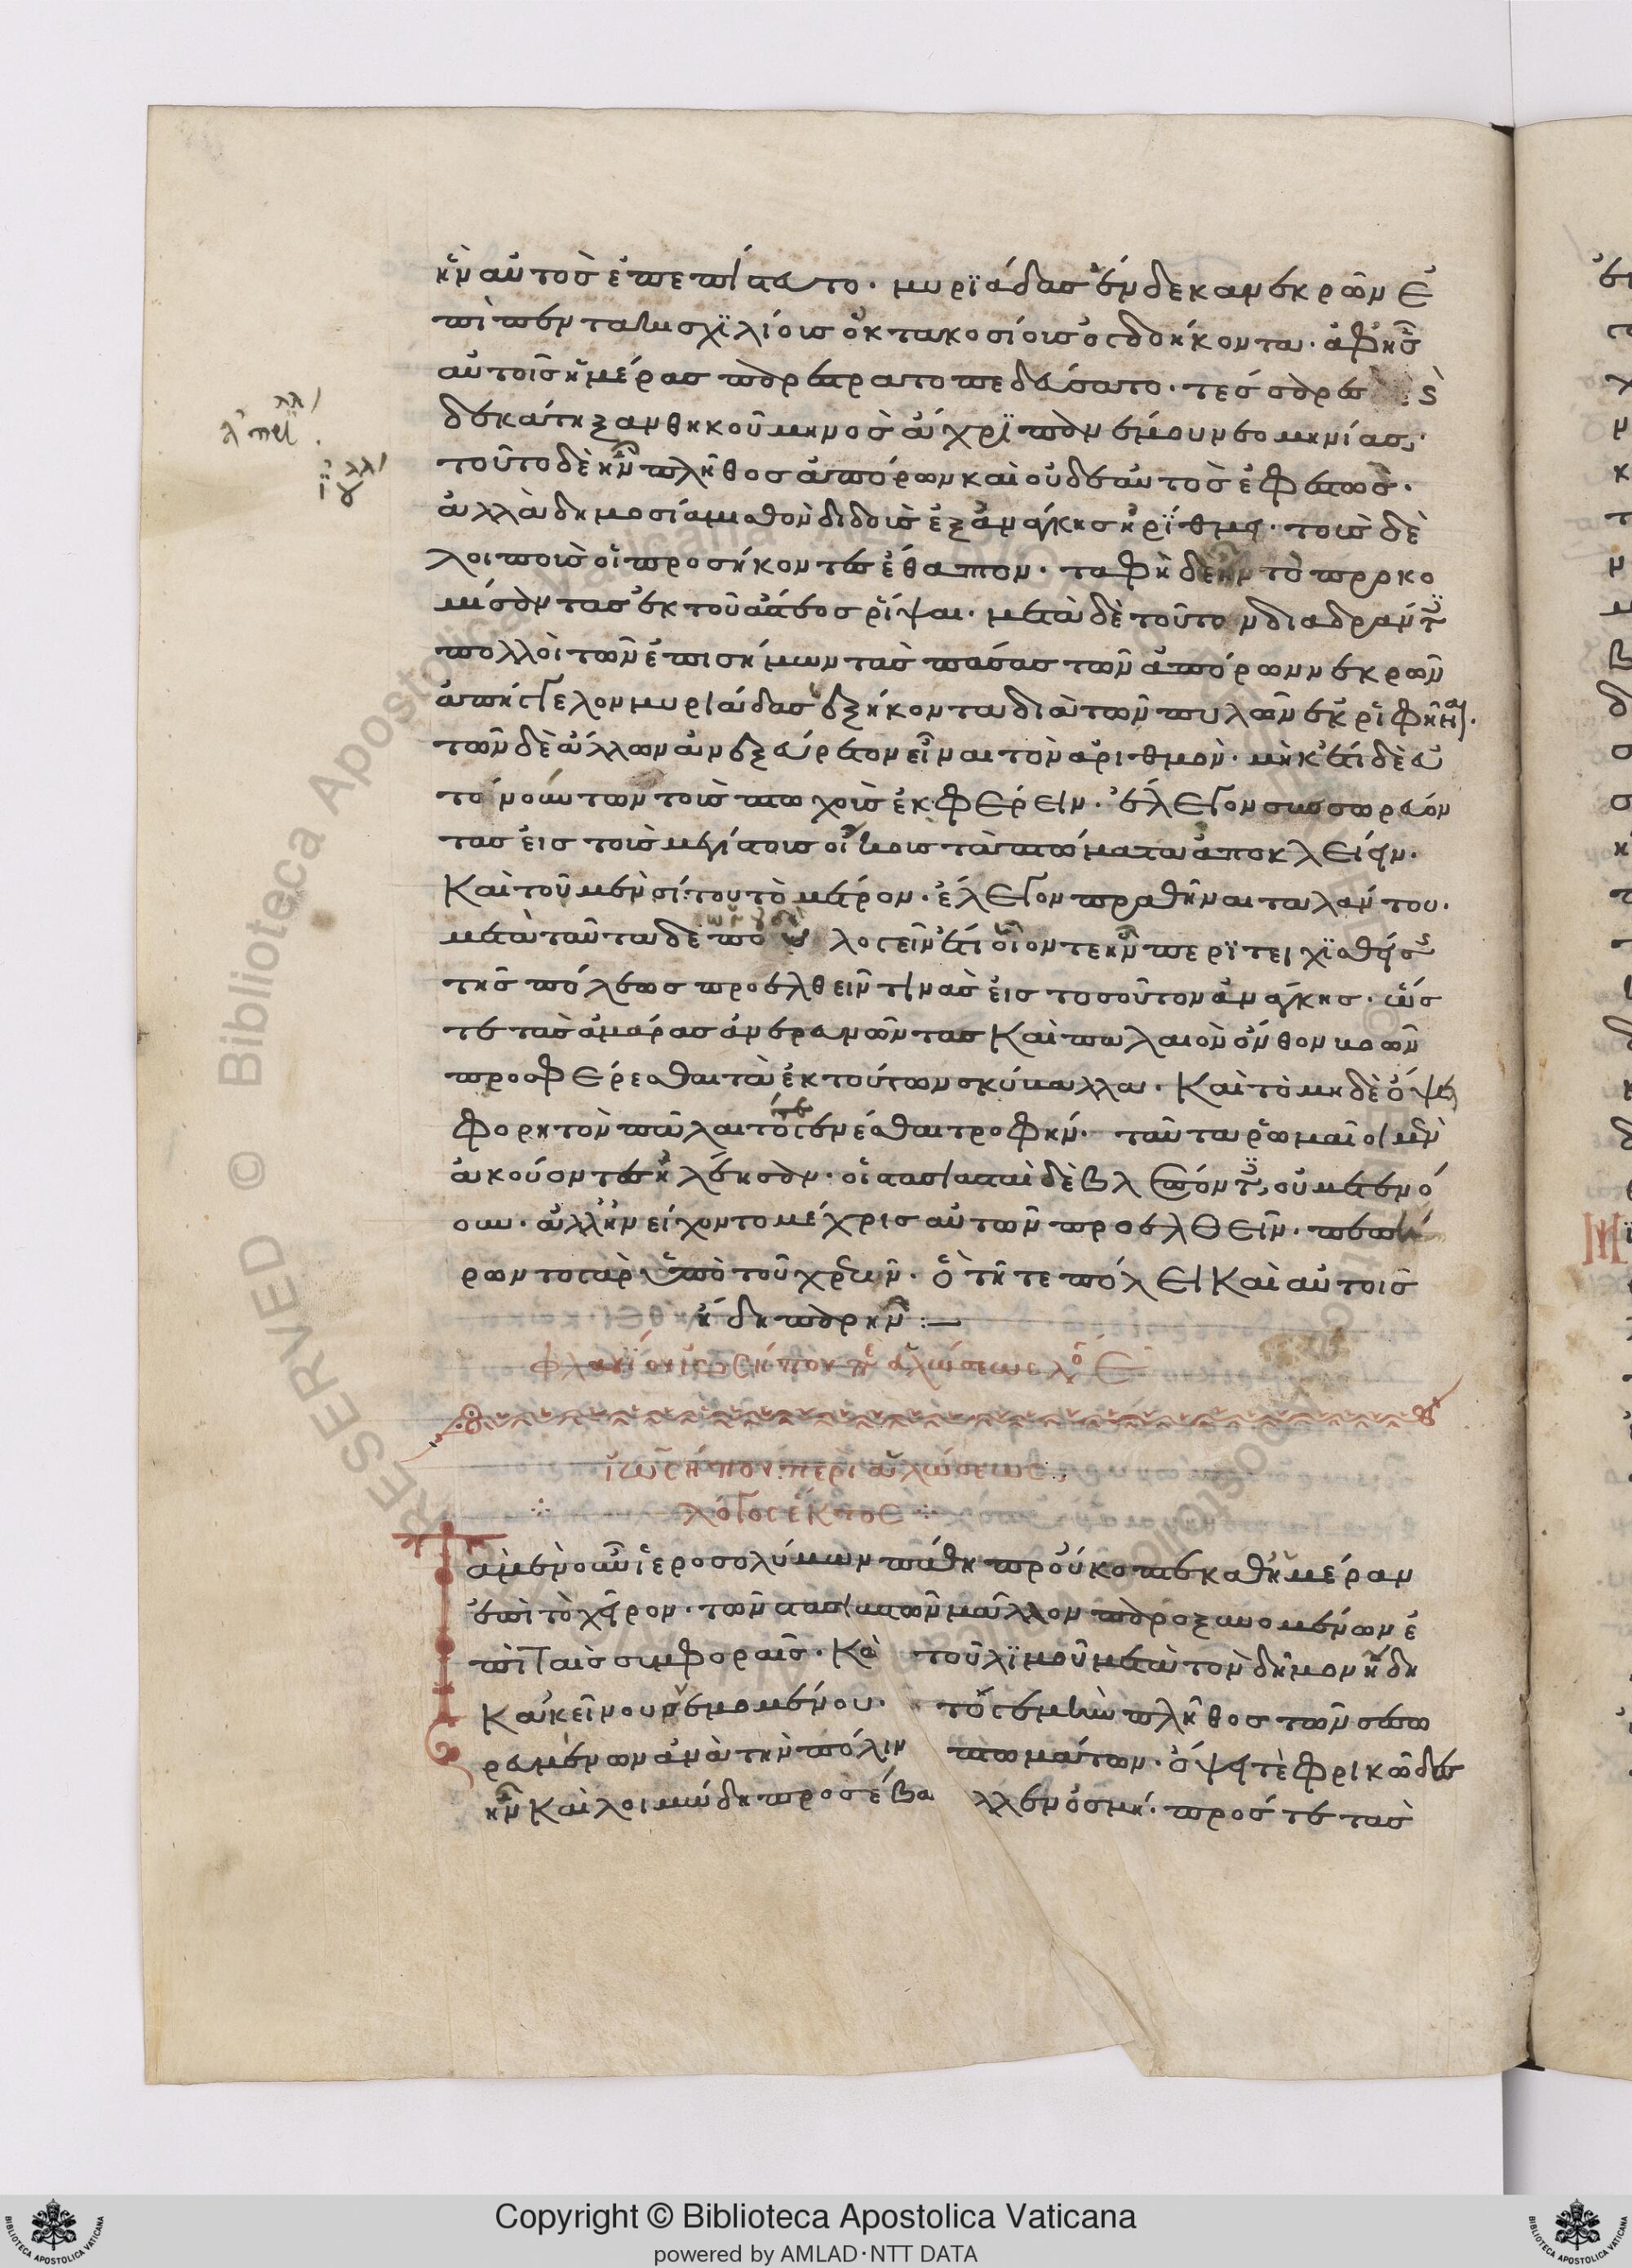 ἣν αὐτὸς ἐπεπίστευτο. μυρϊάδας ἕνδεκα νεκρῶν ἐ
πὶ πεντακισχϊλίοις ὀκτακοσίοις ὀγδοήκοντα. ἀφ' ἧς
αὐτοῖς ἡμέρας παρεστρατοπεδεύσατο. τεσσαρεσ
δεκάτη ξανθικοῦ μηνὸς ἄχρϊ πανέμου νεομηνίας·
τοῦτο δὲ ἦν πλῆθος ἀπόρων καὶ οὐδὲ αὐτὸς ἐφεστὼς.
ἀλλὰ δημοσίᾳ μισθὸν διδοὺς ἐξ ἀνάγκης ἠρίθμει. τοὺς δὲ
λοιποὺς οἱ προσήκοντες ἔθαπτον. ταφὴ δὲ ἦν τὸ προκο
μίσαντας ἐκ τοῦ ἄστεος ῥίψαι. μετὰ δὲ τοῦτον διαδράντες
πολλοὶ τῶν ἐπισήμων τὰς πάσας τῶν ἀπόρων νεκρῶν
ἀπήγγελον μυριάδας ἑξήκοντα διὰ τῶν πυλῶν ἐκριφῆναι.
τῶν δὲ ἄλλων ἀνεξεύρετον εἶναι τὸν ἀριθμὸν. μηκέτι δὲ εὐ
τονούντων τοὺς πτωχοὺς ἐκφέρειν. ἔλεγον συσσωρεύον
τας εἰς τοὺς μεγίστους οἴκους τὰ πτώματα ἀποκλείειν.
Καὶ τοῦ μὲν σίτου τὸ μέτρον. ἔλεγον πραθῆναι ταλάντου.
μετὰ ταῦτα δὲ ὡς οὐδὲ ποηλογεῖν ἔτι οἷόν τε ἦν περϊτειχϊσθείσης
τῆς πόλεως προελθεῖν τινὰς εἰς τοσοῦτον ἀνάγκης. ὥσ
τε τὰς ἀμάρας ἀνερευνῶντας Καὶ παλαιὸν ὄνθον βοῶν
προσφέρεσθαι τὰ ἐκ τούτων σκύβαλλα. Καὶ τὸ μηδὲ ὄψει
φορητὸν πάλαι τότε γενέσθαι τροφήν. ταῦτα ῥωμαῖοι μὲν
ἀκούοντες ἠλέησαν. οἱ στασιασταὶ δὲ βλέποντες, οὐ μετενό
ουν. ἀλλ' ἠνείχοντο μέχρις αὐτῶν προελθεῖν. πεπή
ρωντο γὰρ ὑπὸ τοῦ χρεὼν. ὃ τῇ τε πόλει Καὶ αὐτοῖς
ἤδη παρῆν :—
φλαυΐου ἰωσήπου περὶ ἁλώσεως λόγος Ε
ἰωσήπου περὶ ἁλώσεως
λόγος ἕκτος
Τὰ μὲν οὖν ἱεροσολύμων πάθη προύκοπτε καθ' ἡμέραν
ἐπὶ τὸ χεῖρον. τῶν στασιαστῶν μᾶλλον παροξυνομένων ἐ
πὶ ταῖς συμφοραῖς. Καὶ τοῦ λϊμοῦ μετὰ τὸν δῆμον ἤδη
Κἀκείνους νεμομένου. τό γε μὴν πλῆθος τῶν σεσω
ρευμένων ἀνὰ τὴν πόλιν πτωμάτων. ὄψει τὲ φρικῶδες
ἦν Καὶ λοιμώδη προσέβαλλεν ὀσμή. πρός τε τὰς
Copyright © Biblioteca Apostolica Vaticana
powered by AMLAD·NTT DATA